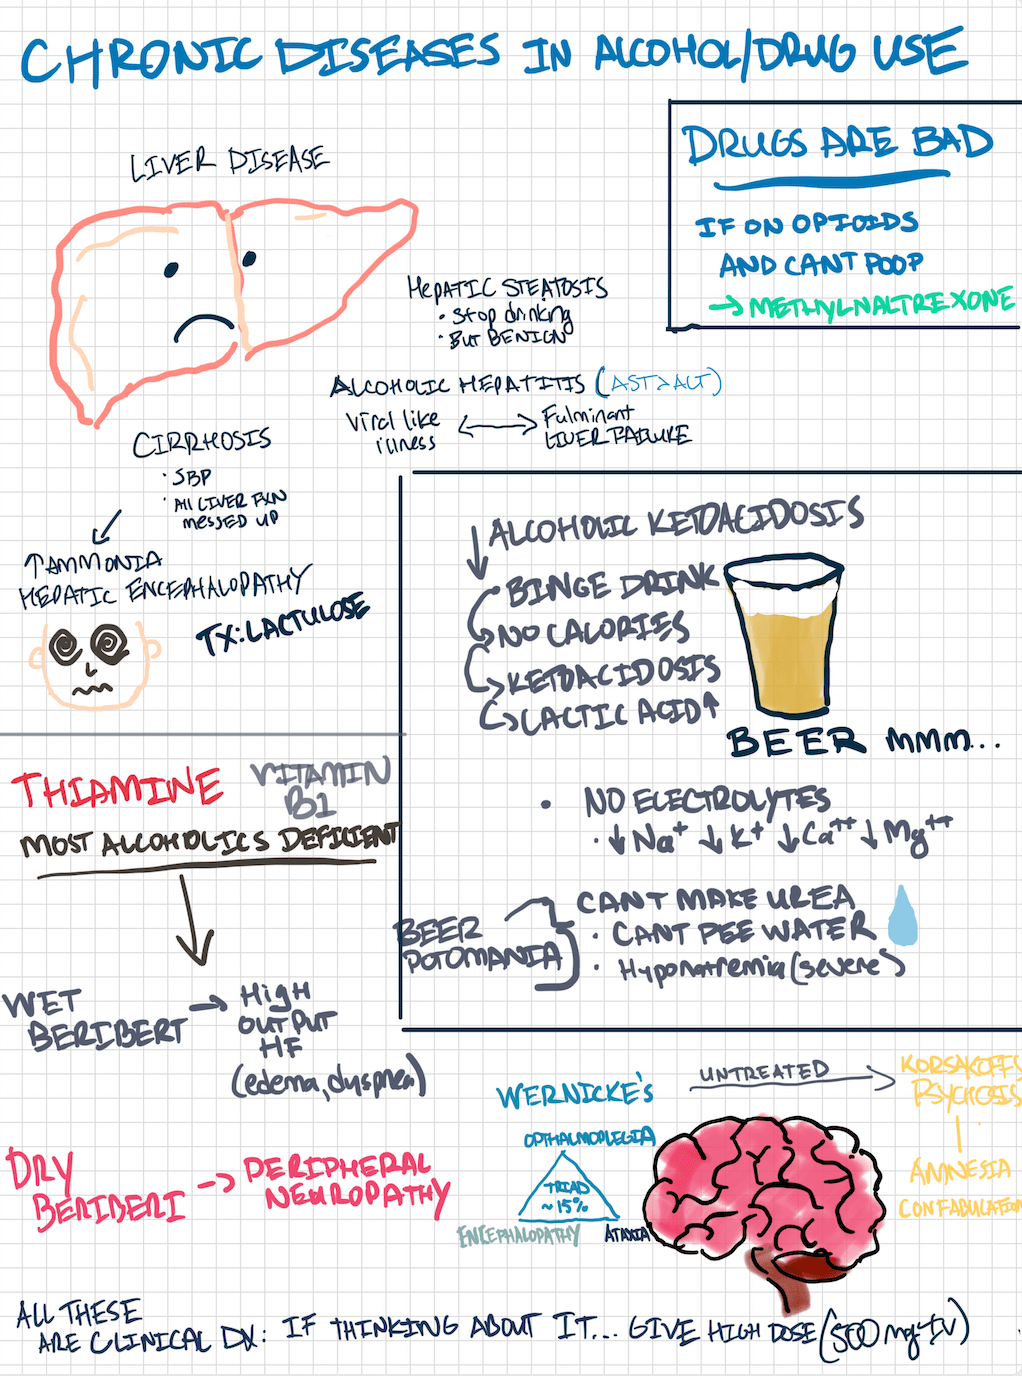 CHRONIC DISEASES IN ALCOHOL/DRUG USE
DRUGS ARE BAD
IF ON OPIOIDS
AND CANT POOP
→ METHYLNALTREXONE
LIVER DISEASE
HEPATIC STEATOSIS
· Stop drinking
· BUT BENIGN
ALCOHOLIC HEPATITIS (AST>ALT)
Viral like
illness
Fulminant
LIVER FAILURE
CIRRHOSIS
· SBP
· All LIVER FXN
MESSED UP
↑AMMONIA
HEPATIC ENCEPHALOPATHY
TX: LACTULOSE
ALCOHOLIC KETOACIDOSIS
BINGE DRINK
NO CALORIES
KETOACIDOSIS
LACTIC ACID↑
BEER MMM...
· NO ELECTROLYTES
· ↓Na⁺ ↓K⁺ ↓Ca⁺⁺ ↓Mg⁺⁺
BEER
POTOMANIA
CANT MAKE UREA
· CANT PEE WATER
· Hyponatremia (severe)
THIAMINE VITAMIN
B1
MOST ALCOHOLICS DEFICIENT
WET
BERIBERI
→ HIGH
OUTPUT
HF
(edema, dyspnea)
DRY
BERIBERI
→ PERIPHERAL
NEUROPATHY
WERNICKE'S
UNTREATED
KORSAKOFFS
PSYCHOSIS
AMNESIA
CONFABULATION
OPTHALMOPLEGIA
TRIAD
~15%
ENCEPHALOPATHY
ATAXIA
ALL THESE
ARE CLINICAL DX: IF THINKING ABOUT IT... GIVE HIGH DOSE (500 mg IV)